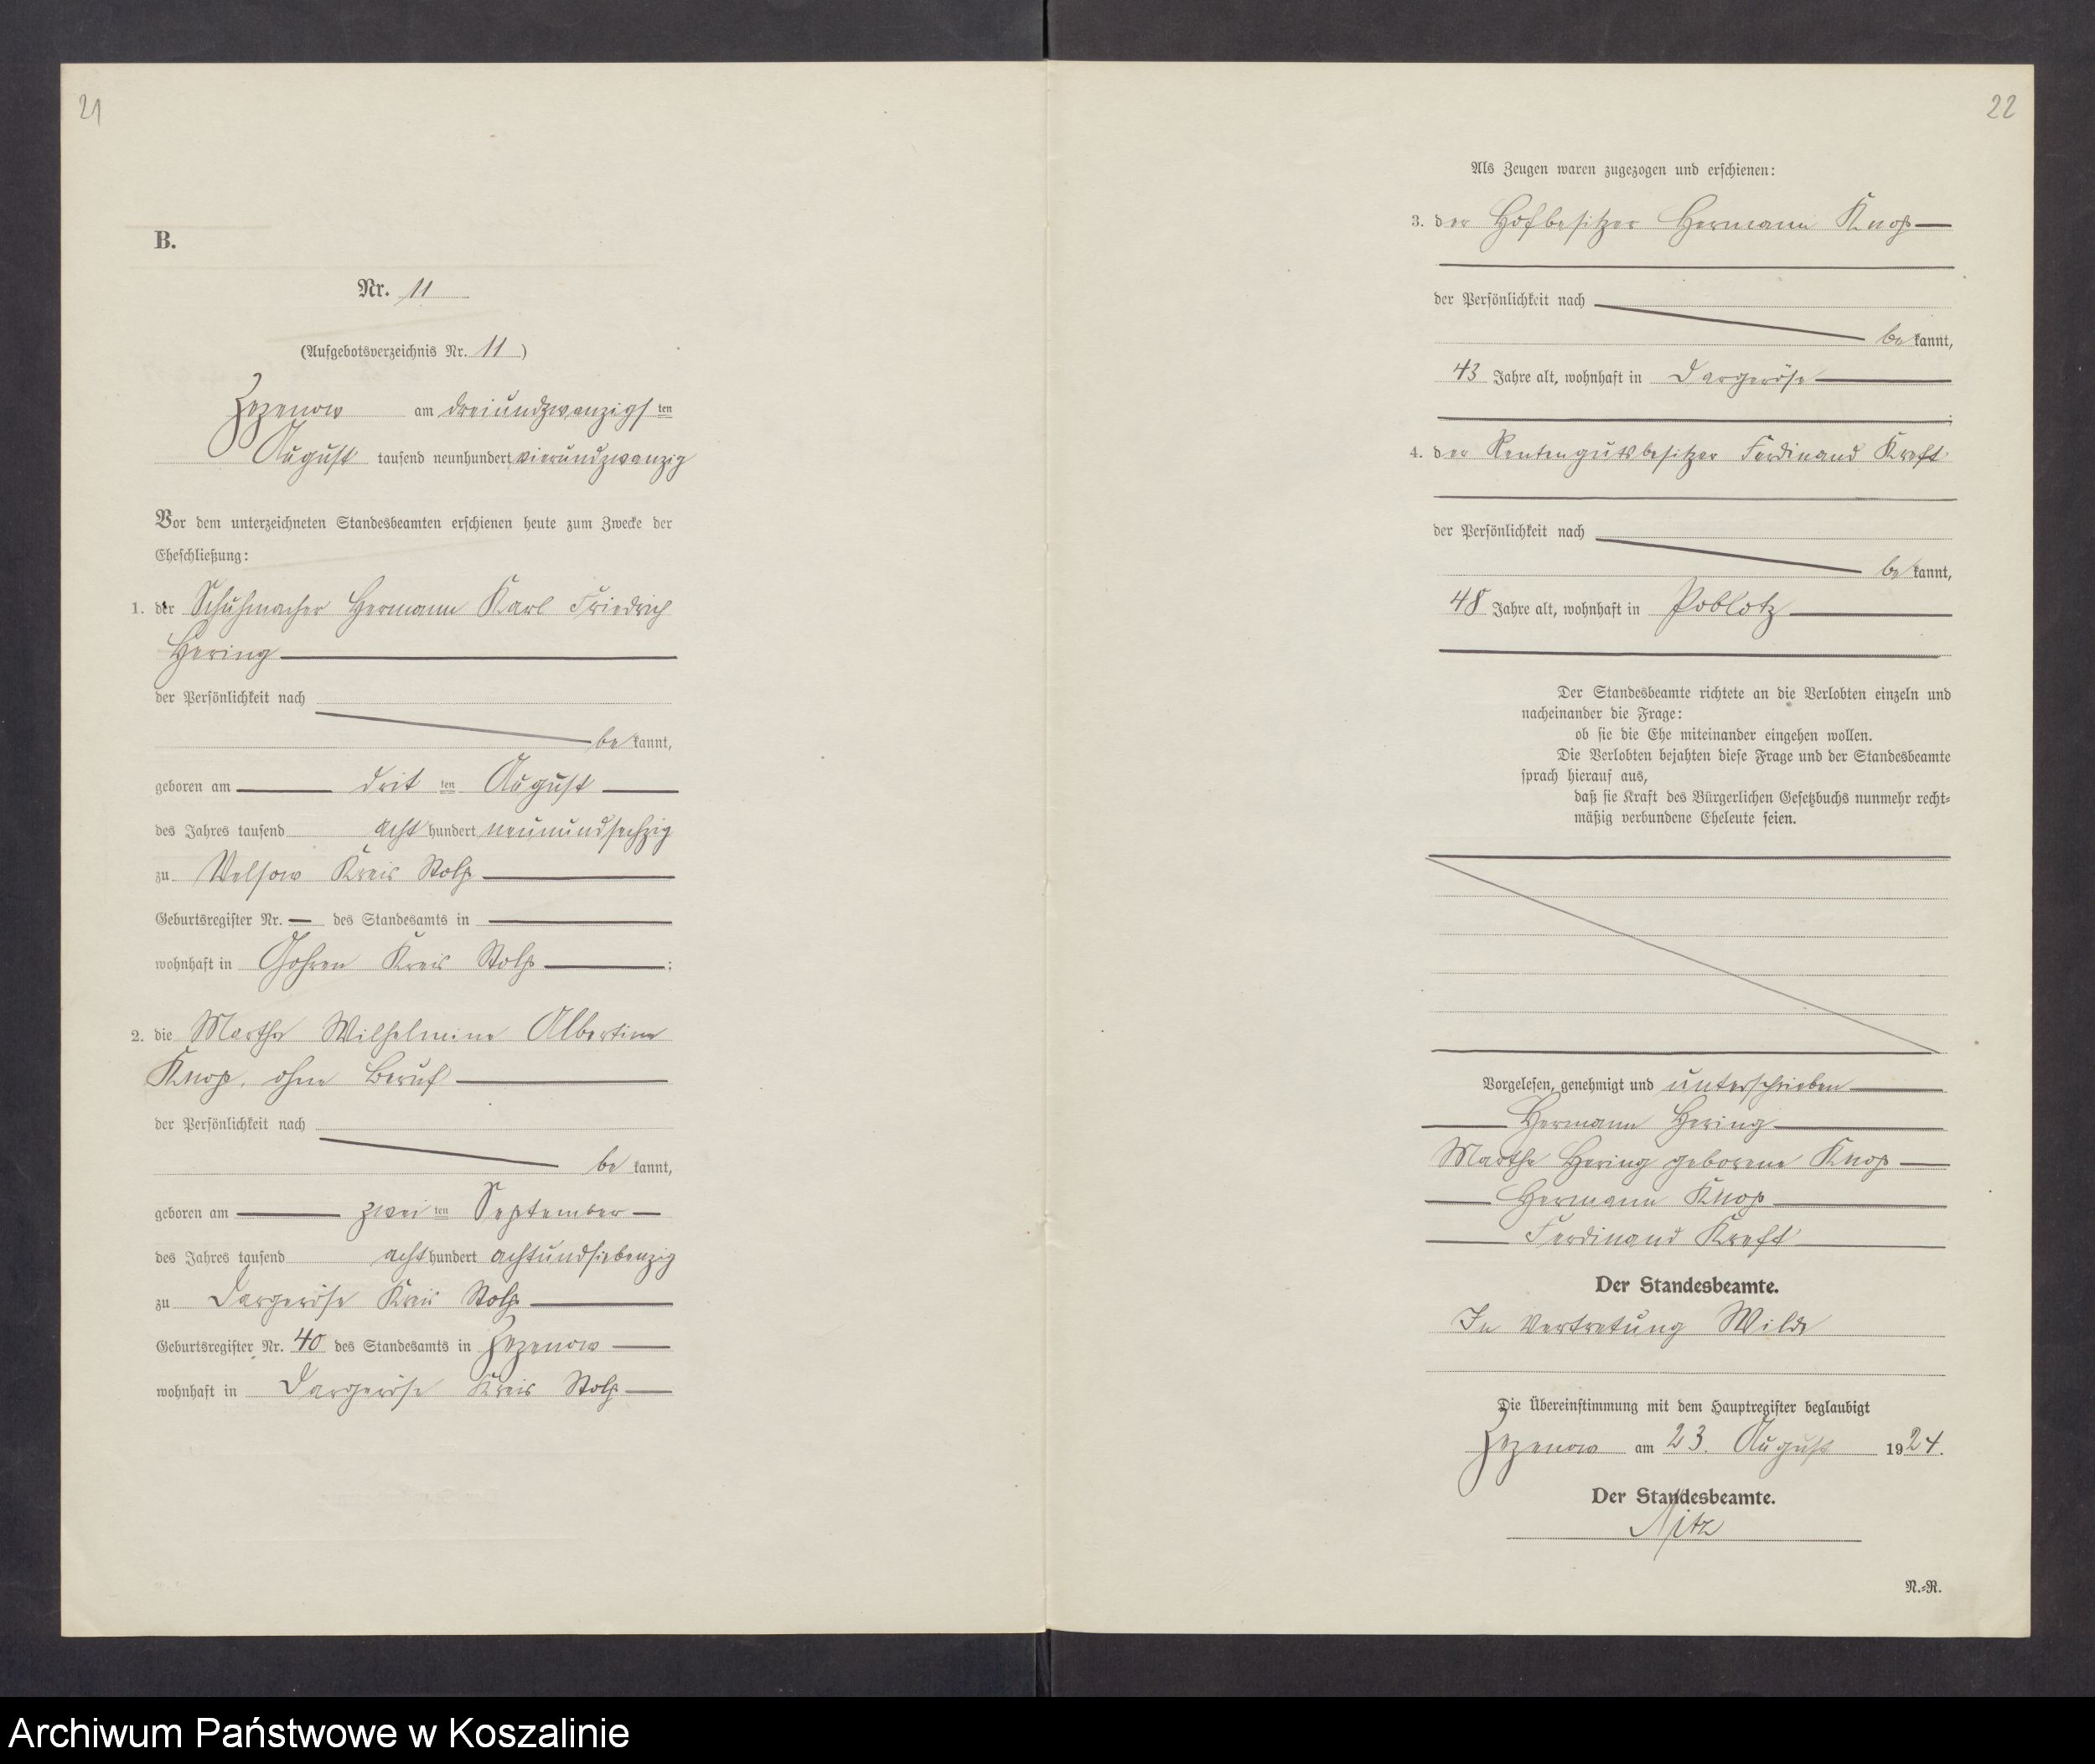 21
B.
Nr. 11
(Aufgebotsverzeichnis Nr. 11)
Zezenow am dreiundzwanzigsten
August tausend neunhundert vierundzwanzig
Vor dem unterzeichneten Standesbeamten erschienen heute zum Zwecke der
Eheschließung:
1. der Schuhmacher Hermann Karl Friedrich
Hering
der Persönlichkeit nach
bekannt,
geboren am dritten August
des Jahres tausend achthundert neunundsechzig
zu Velsow Kreis Stolp
Geburtsregister Nr. — des Standesamts in
wohnhaft in Gohren Kreis Stolp ;
2. die Martha Wilhelmine Albertine
Knop, ohne Beruf
der Persönlichkeit nach
bekannt,
geboren am zweiten September
des Jahres tausend achthundert achtundsiebenzig
zu Dargeröse Kreis Stolp
Geburtsregister Nr. 40 des Standesamts in Zezenow
wohnhaft in Dargeröse Kreis Stolp
22
Als Zeugen waren zugezogen und erschienen:
3. der Hofbesitzer Hermann Knop
der Persönlichkeit nach
bekannt,
43 Jahre alt, wohnhaft in Dargeröse
;
4. der Rentengutsbesitzer Ferdinand Kreft
der Persönlichkeit nach
bekannt,
48 Jahre alt, wohnhaft in Poblotz
Der Standesbeamte richtete an die Verlobten einzeln und
nacheinander die Frage:
ob sie die Ehe miteinander eingehen wollen.
Die Verlobten bejahten diese Frage und der Standesbeamte
sprach hierauf aus,
daß sie Kraft des Bürgerlichen Gesetzbuchs nunmehr recht-
mäßig verbundene Eheleute seien.
Vorgelesen, genehmigt und unterschrieben
Hermann Hering
Martha Hering geborene Knop
Hermann Knop
Ferdinand Kreft
Der Standesbeamte.
In Vertretung Wilde
Die Übereinstimmung mit dem Hauptregister beglaubigt
Zezenow am 23. August 1924.
Der Standesbeamte.
Nitz
N.-R.
Archiwum Państwowe w Koszalinie